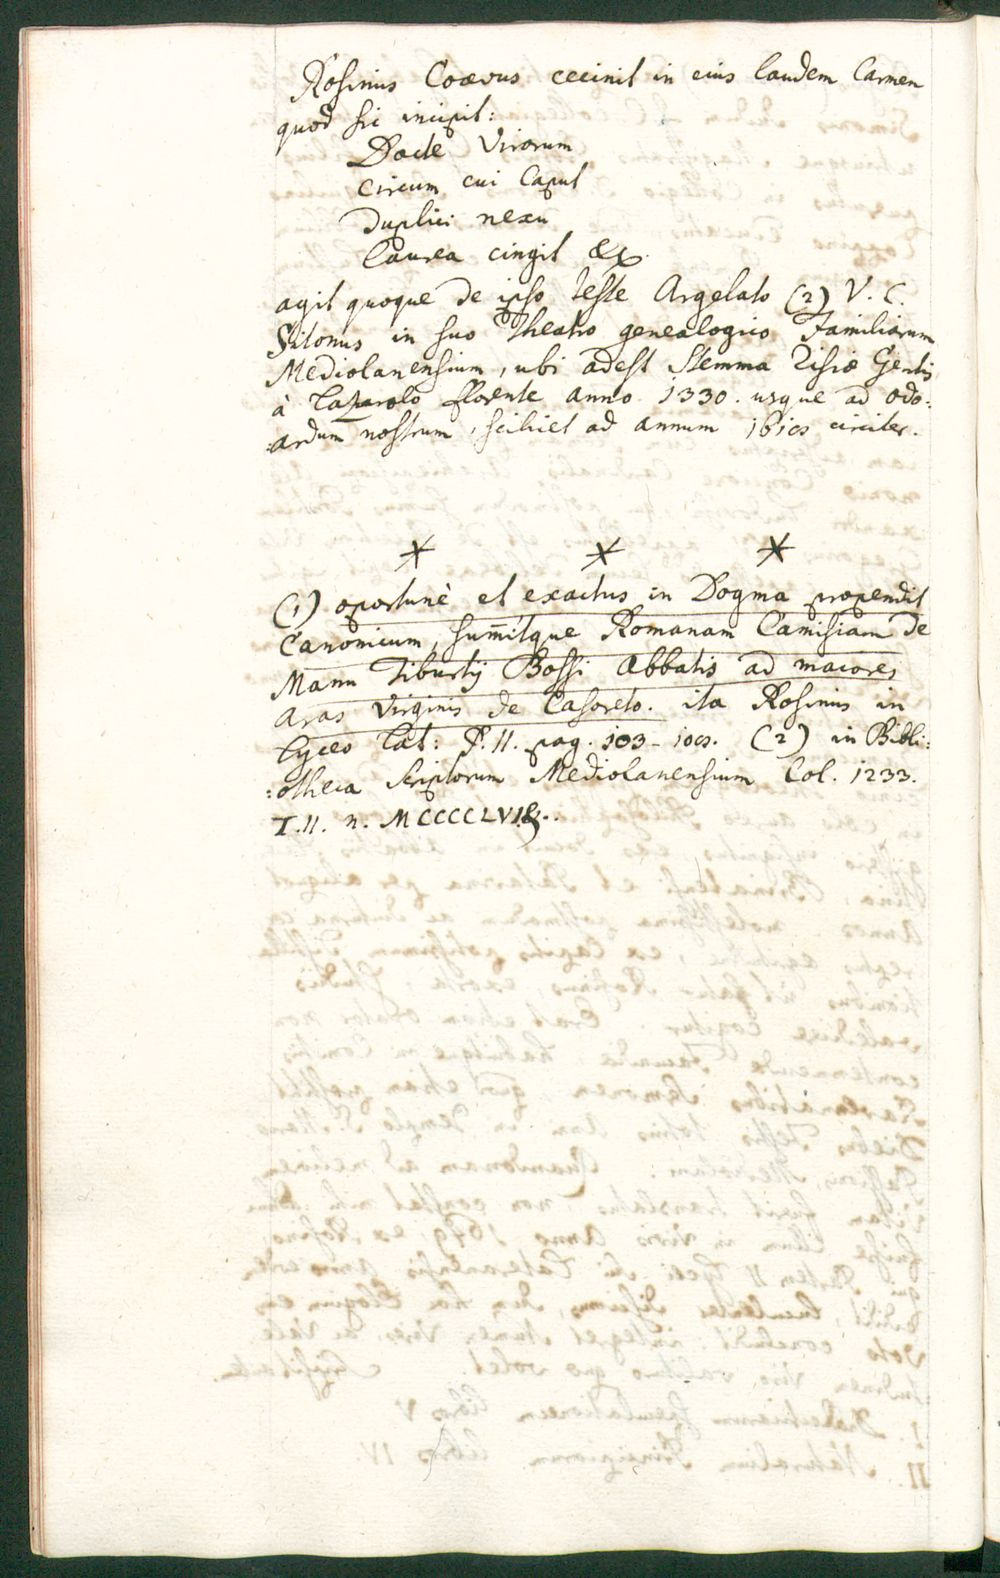 Rosinius Coævus cecinit in eius laudem Carmen
quod sic incipit:
Docte Virorum
Circum cui Caput
Duplici nexu
Laurea cingit &c.
agit quoque de ipso teste Argelato (2) V. C.
Sitonus in suo Theatro genealogico Familiarum
Mediolanensium, ubi adest Stemma Gentis
à Lazarolo florente anno 1330. usque ad Odo:
:ardum nostrum, scilicet ad annum circiter.
* * *
(1) oportunè et exactus in Dogma propendit
Canonicum, sumitque Romanam Camisiam de
Manu Tiburtij Bossi Abbatis ad maiores
aras Virginis de Casoreto. ita Rosinius in
Lyceo Lat: P. II. pag. 103 - (2) in Bibli:
:otheca Scriptorum Mediolanensium Col. 1233.
T. II. n.